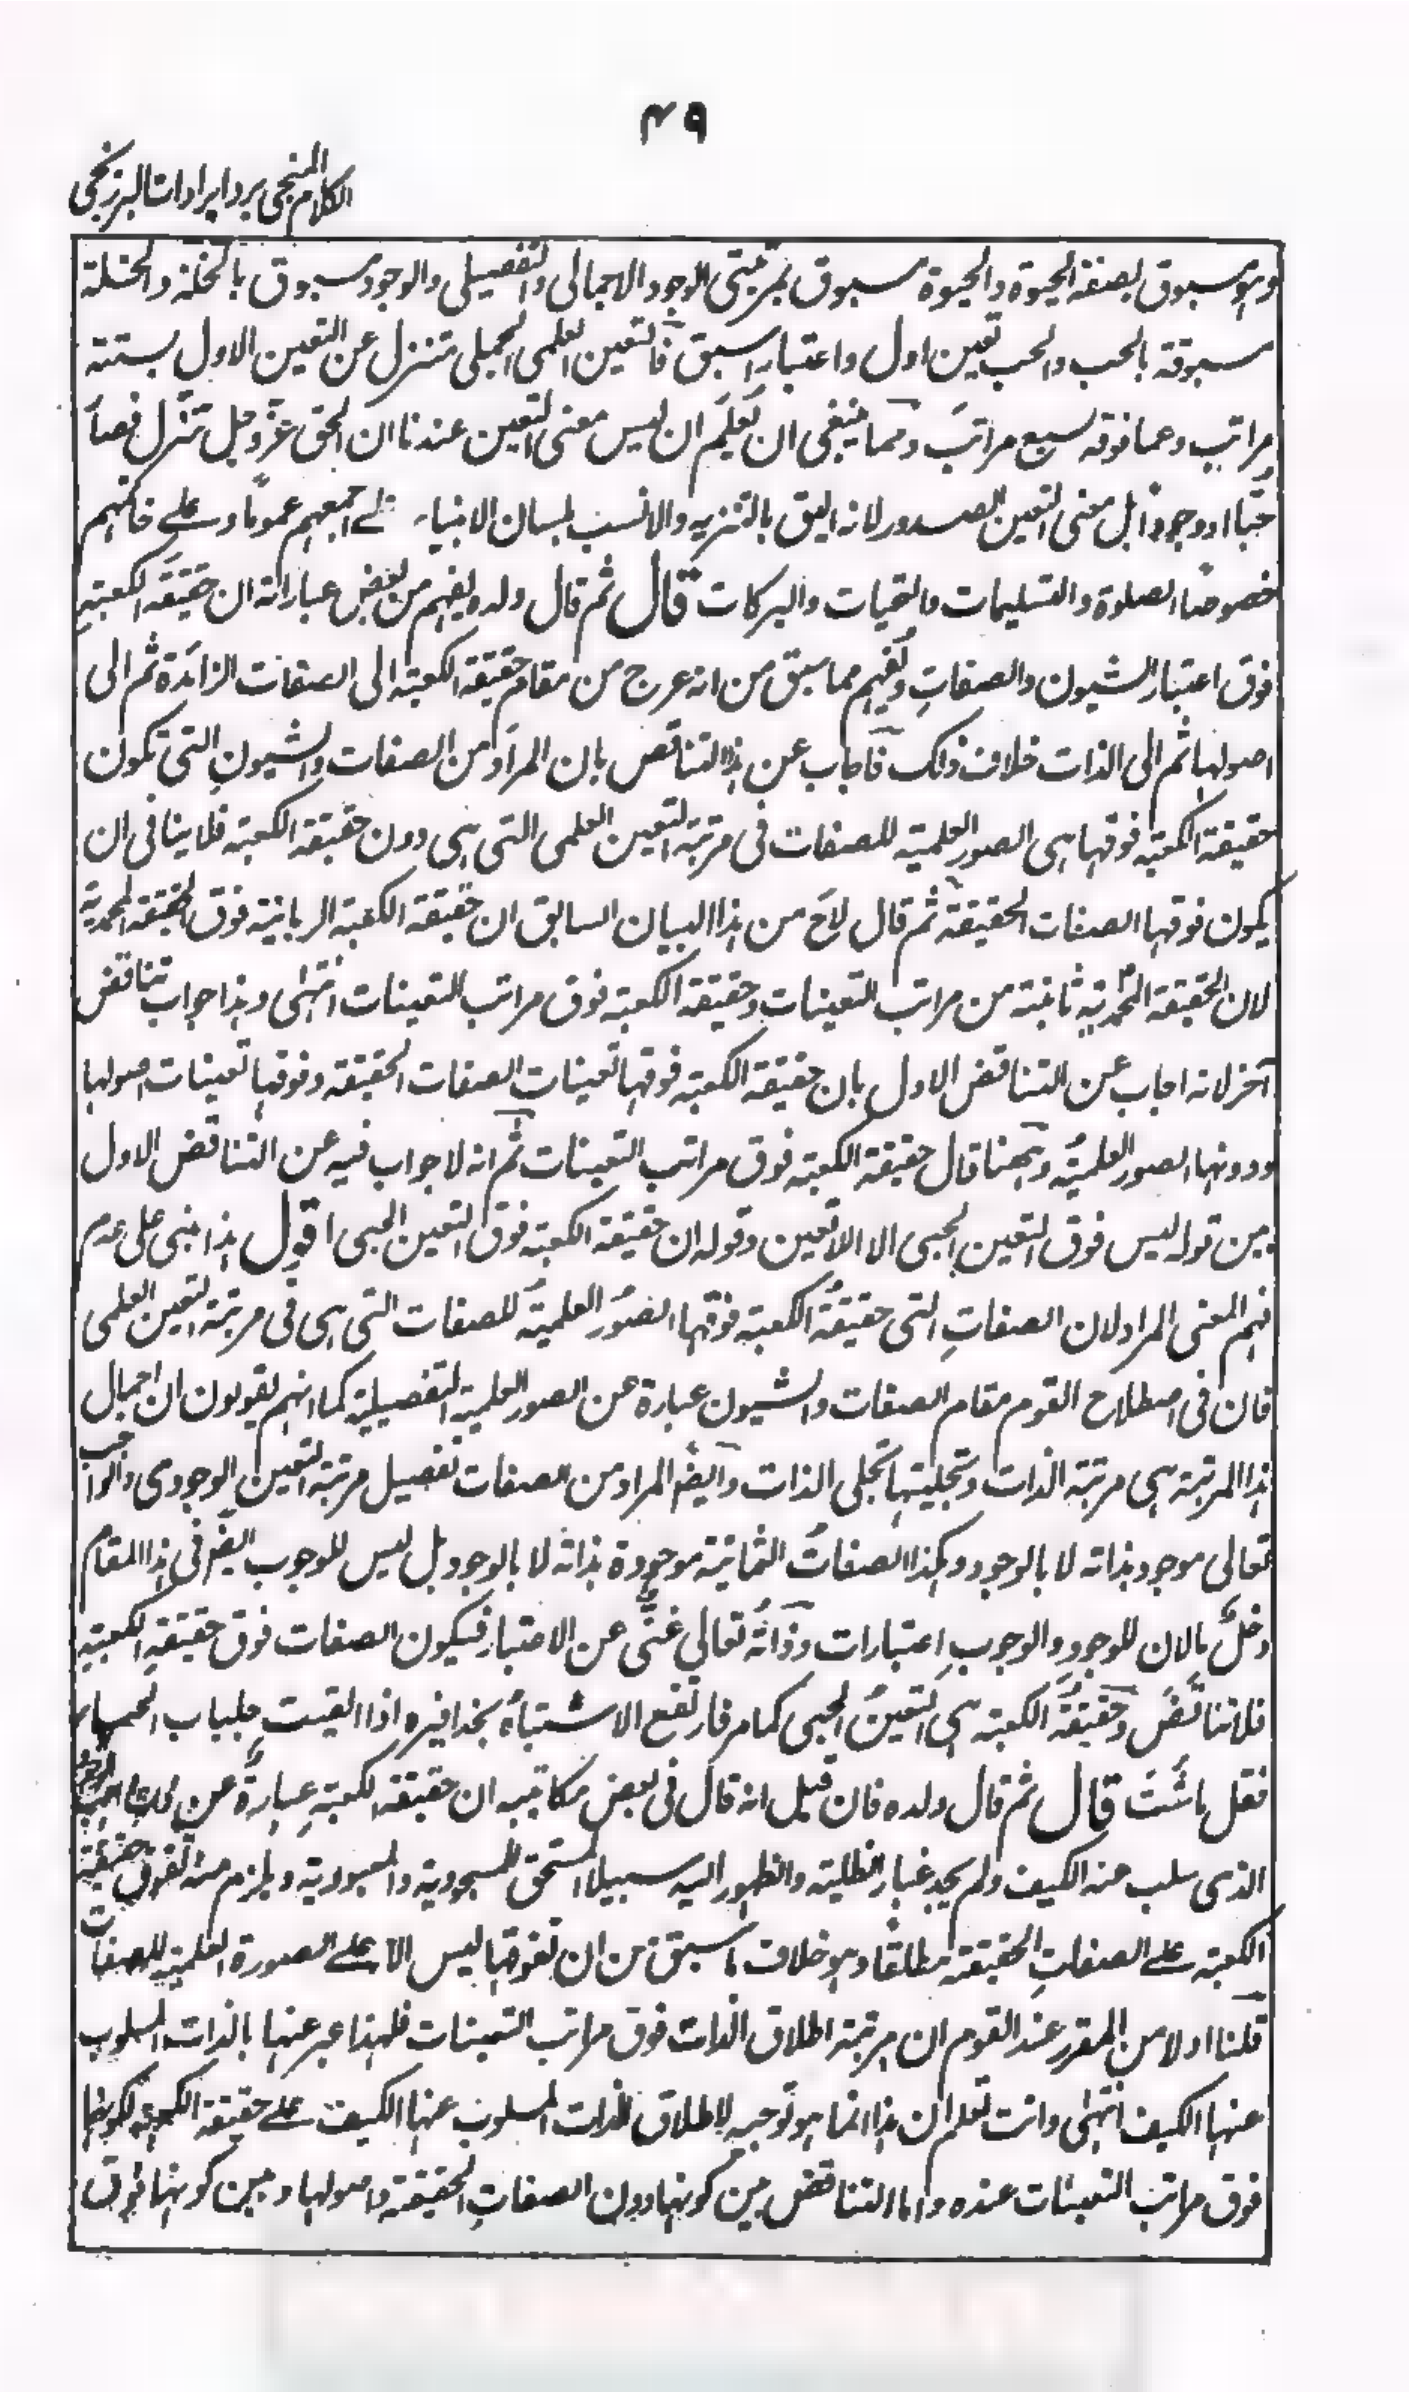 ٤٩
الكلام المنجى برد ايرادات البرزنجى
وهو مسبوق بصفة الحيوة والحيوة مسبوق بمرتبتى الوجود الاجمالى والتفصيلى والوجود مسبوق بالخلة والخلة
مسبوقة بالحب والحب تعين اول واعتبار اسبق فالتعين العلمى الجملى متنزل عن التعين الاول بستة
مراتب وعما فوقه سبع مراتب ومما ينبغى ان تعلم ان ليس معنى التعين عندنا ان الحق عز وجل تنزل فصار
حبا او وجودا بل معنى التعين الصدور لانه اليق بالتنزيه والانسب بلسان الانبياء على جمعهم عموما وعلى خاتمهم
خصوصا الصلوة والتسليمات والتحيات والبركات قال ثم قال ولده يفهم من بعض عباراته ان حقيقة الكعبة
فوق اعتبار الشيون والصفات ويفهم مما سبق من انه عرج من مقام حقيقة الكعبة الى الصفات الزائدة ثم الى
اصولها ثم الى الذات خلاف ذلك فاجاب عن هذا التناقص بان المراد من الصفات والشيون التى تكون
حقيقة الكعبة فوقها هى الصور العلمية للصفات فى مرتبة التعين العلمى التى هى دون حقيقة الكعبة فلا ينافى ان
يكون فوقها الصفات الحقيقة ثم قال لاح من هذا البيان السابق ان حقيقة الكعبة الربانية فوق الحقيقة المحمدية
لان الحقيقة المحمدية ثابتة من مراتب التعينات وحقيقة الكعبة فوق مراتب التعينات انتهى وهذا جواب تناقض
آخر لانه اجاب عن التناقض الاول بان حقيقة الكعبة فوقها تعينات الصفات الحقيقة وفوقها تعينات اصولها
ودونها الصور العلمية وههنا قال حقيقة الكعبة فوق مراتب التعينات ثم انه لا جواب فيه عن التناقض الاول
بين قوله ليس فوق التعين الحبى الا اللاتعين وقوله ان حقيقة الكعبة فوق التعين الحبى اقول هذا مبنى على عدم
فهم المعنى المراد لان الصفات التى حقيقة الكعبة فوقها الصور العلمية للصفات التى هى فى مرتبة التعين العلمى
فان فى اصطلاح القوم مقام الصفات والشيون عبارة عن الصور العلمية التفصيلية كما انهم يقولون ان اجمال
هذا المرتبة هى مرتبة الذات وتجليتها تجلى الذات وايضا المراد من الصفات تفصيل مرتبة التعين الوجودى والواجب
تعالى موجود بذاته لا بالوجود وهكذا الصفات الثمانية موجودة بذاته لا بالوجود بل ليس للوجوب ايضا فى هذا المقام
دخل مالان للوجود والوجوب اعتبارات وذاته تعالى غنى عن الاعتبار فيكون الصفات فوق حقيقة الكعبة
فلا تناقض وحقيقة الكعبة هى التعين الحبى كما مر فارتفع الاشتباه بحذافيره اذا القيت جلباب الحياء
فقل ما شئت قال ثم قال ولده فان قيل انه قال فى بعض مكاتيبه ان حقيقة الكعبة عبارة عن ذات واجب الوجود
الذى سلب عنه الكيف ولم يجد غبار الظلية والظهور اليه سبيلا المستحق للمسجودية والمعبودية ويلزم منه تفوق حقيقة
الكعبة على الصفات الحقيقة مطلقا وهو خلاف ما سبق من ان تفوقها ليس الا على الصورة العلمية للصفات
قلنا اولا من المقرر عند القوم ان مرتبة اطلاق الذات فوق مراتب التعينات فلهذا عبر عنها بالذات المسلوب
عنها الكيف انتهى وانت تعلم ان هذا انما هو توجيه لاطلاق الذات المسلوب عنها الكيف على حقيقة الكعبة لكونها
فوق مراتب التعينات عنده واما التناقض بين كونها دون الصفات الحقيقة واصولها وبين كونها فوق